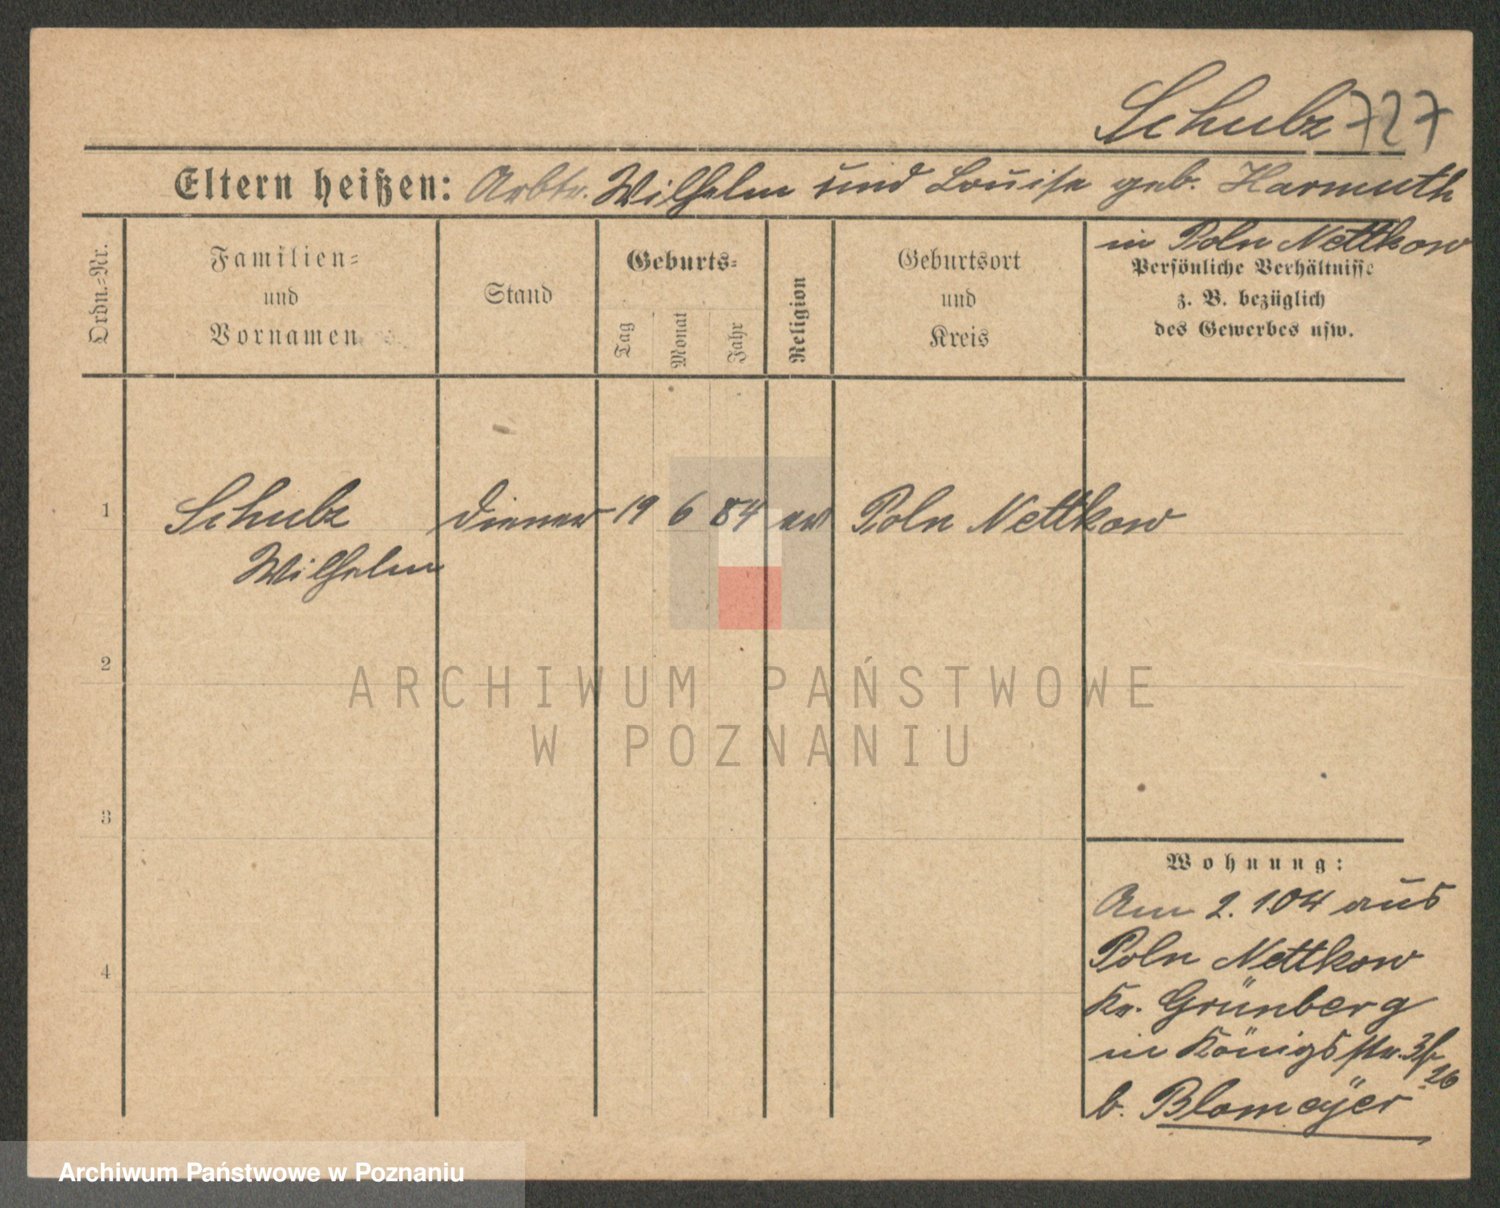 Schulz 727
Eltern heißen: Arbtr. Wilhelm und Louise geb. Harmuth
in Poln Nettkow
Ordn.-Nr.
Familien-
und
Vornamen
Stand
Geburts-
Tag
Monat
Jahr
Religion
Geburtsort
und
Kreis
Persönliche Verhältnisse
z. B. bezüglich
des Gewerbes usw.
1 Schulz Diener 19 6 84 ev Poln Nettkow
Wilhelm
2
ARCHIWUM PAŃSTWOWE
W POZNANIU
3
Wohnung:
Am 2. 1 04 aus
4
Poln Nettkow
Kr. Grünberg
in Königsstr.
b. Blomeÿer
Archiwum Państwowe w Poznaniu